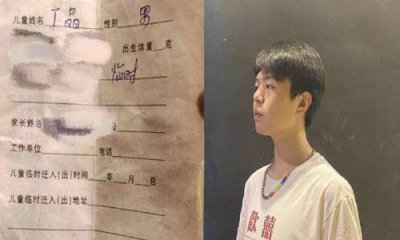 儿童姓名 丁晶 性别 男
出生体重 克
临时
家长姓名
工作单位 电话
儿童临时迁入(出)时间 年 月 日
儿童临时迁入(出)地址
歡囍